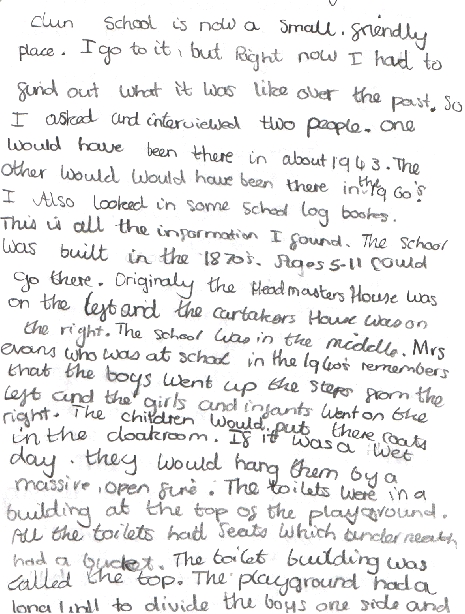 Clun School is now a small. friendly
place. I go to it, but Right now I had to
find out what it was like over the past. So
I asked and interviewed two people. one
would have been there in about 1943. The
other would would have been there in the 1960's.
I Also looked in some school log bookes.
This is all the information I found. The School
was built in the 1870's. Ages 5-11 could
go there. Originaly the Headmasters House was
on the left and the cartakers House was on
the right. The school was in the middle. Mrs
evans who was at school in the 1940's remembers
that the boys went up the steps from the
left and the girls and infants went on the
right. The children would put there coats
in the cloakroom. If it was a wet
day. they would hang them by a
massive, open fire. The toilets were in a
building at the top of the playground.
All the toilets had seats which underneath
had a bucket. The toilet building was
called the top. The playground had a
long wall to divide the boys one side and